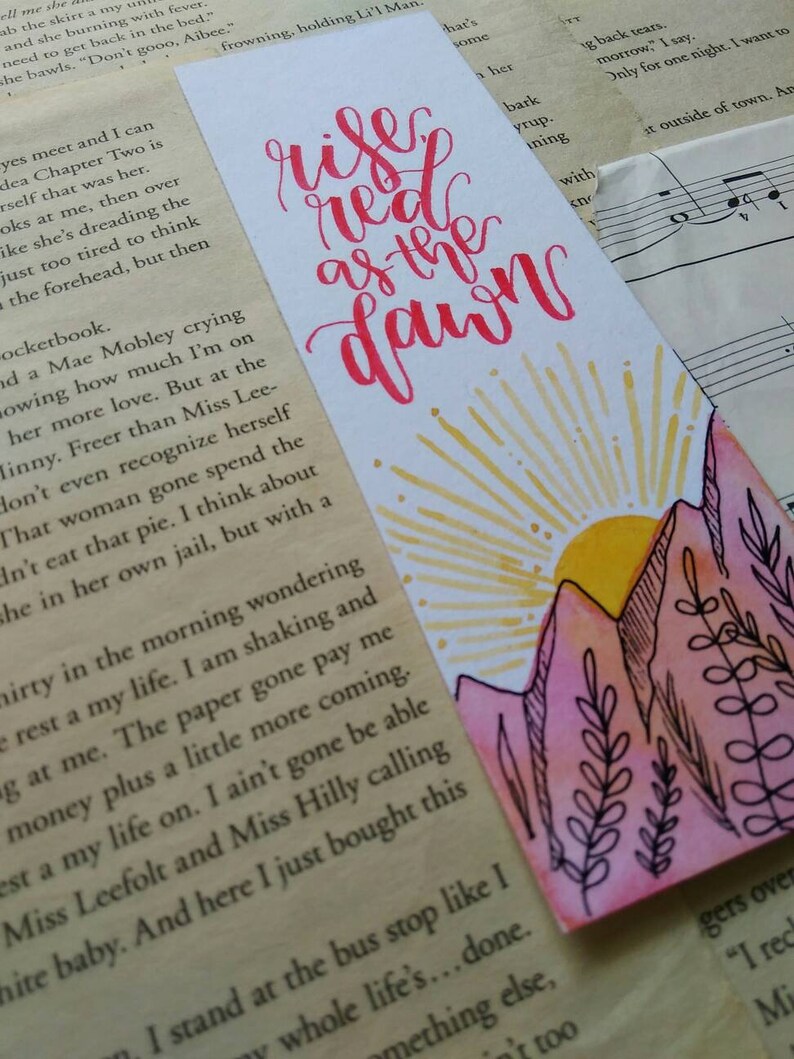 tell me she
ab the skirt a my
and she burning with fever.
need to get back in the bed."
she bawls. "Don't gooo, Aibee."
frowning, holding Li'l Man.
some
her
bark
syrup.
with
g back tears.
morrow," I say.
Only for one night. I want to
outside of town.
eyes meet and I can
dea Chapter Two is
rself that was her.
ooks at me, then over
ike she's dreading the
just too tired to think
the forehead, but then
ocketbook.
nd a Mae Mobley crying
nowing how much I'm on
her more love. But at the
Minny. Freer than Miss Lee-
don't even recognize herself
That woman gone spend the
dn't eat that pie. I think about
she in her own jail, but with a
hirty in the morning wondering
e rest a my life. I am shaking and
og at me. The paper gone pay me
money plus a little more coming.
est a my life on. I ain't gone be able
Miss Leefolt and Miss Hilly calling
hite baby. And here I just bought this
I stand at the bus stop like I
my whole life's…done.
omething else,
n't too
rise,
red
as the
dawn
gers over
"I
Mi